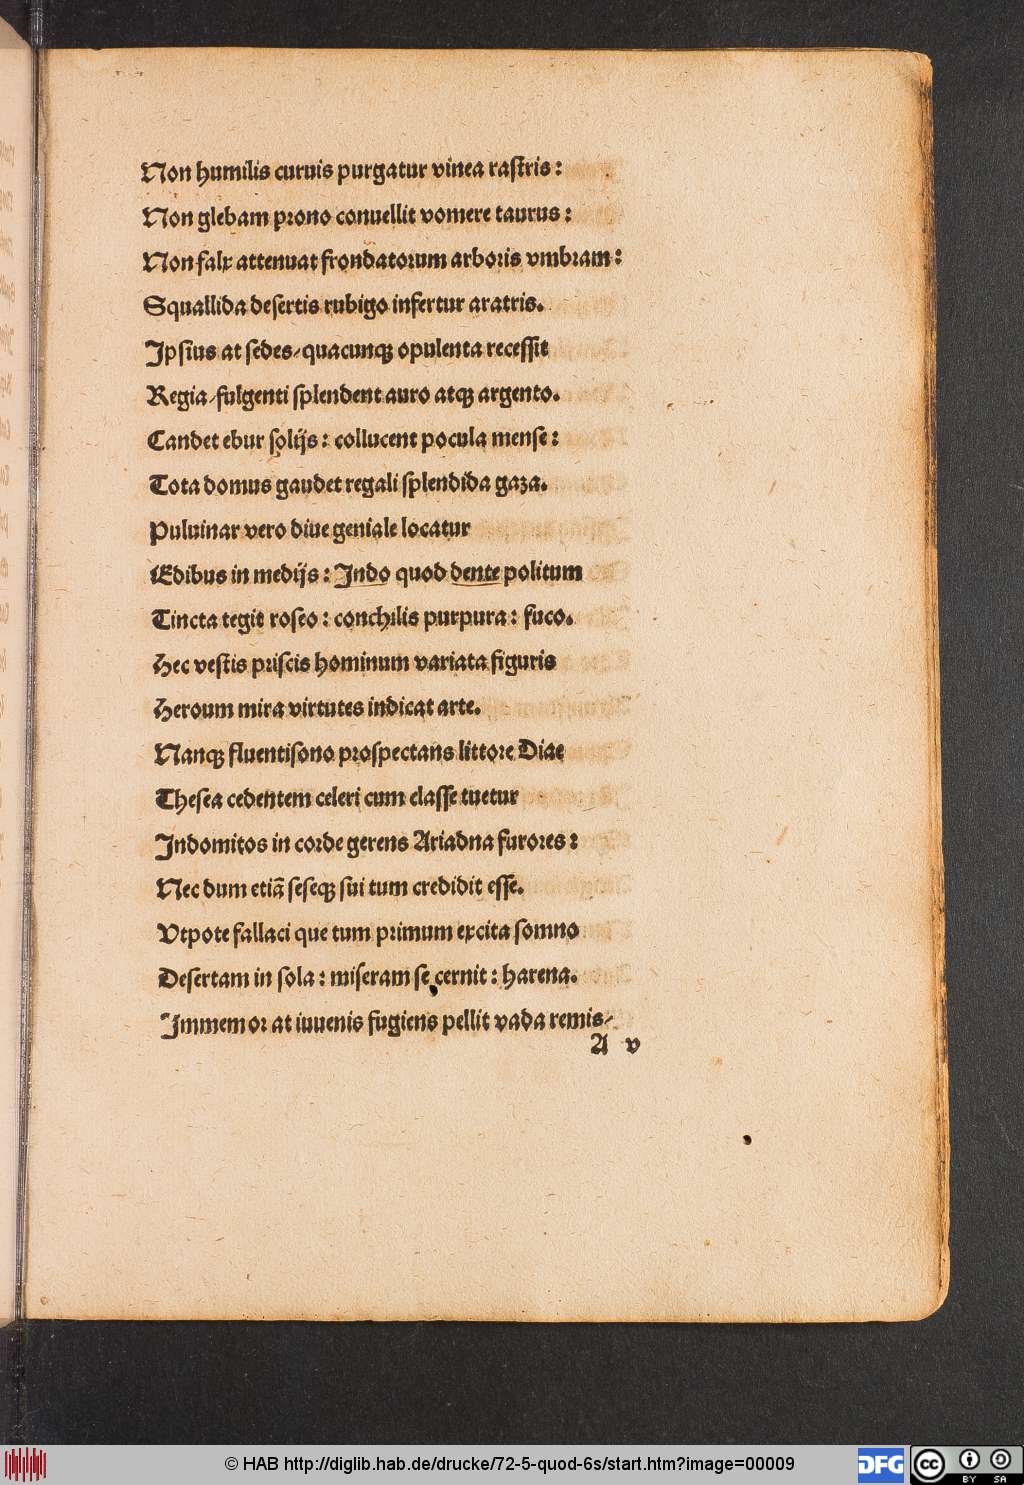 Non humilis curuis purgatur vinea rastris:
Non glebam prono conuellit vomere taurus:
Non falx attenuat frondatorum arboris vmbram:
Squallida desertis rubigo infertur aratris.
Ipsius at sedes/quacunqꝫ opulenta recessit
Regia/fulgenti splendent auro atqꝫ argento.
Candet ebur solijs: collucent pocula mense:
Tota domus gaudet regali splendida gaza.
Puluinar vero diue geniale locatur
Edibus in medijs: Indo quod dente politum
Tincta tegit roseo: conchilis purpura: fuco.
Hec vestis priscis hominum variata figuris
Heroum mira virtutes indicat arte.
Nanqꝫ fluentisono prospectans littore Diae
Thesea cedentem celeri cum classe tuetur
Indomitos in corde gerens Ariadna furores:
Nec dum etiã seseqꝫ sui tum credidit esse.
Vtpote fallaci que tum primum excita somno
Desertam in sola: miseram se cernit: harena.
Immemor at iuuenis fugiens pellit vada remis/
A v
© HAB http://diglib.hab.de/drucke/72-5-quod-6s/start.htm?image=00009
DFG
cc BY SA